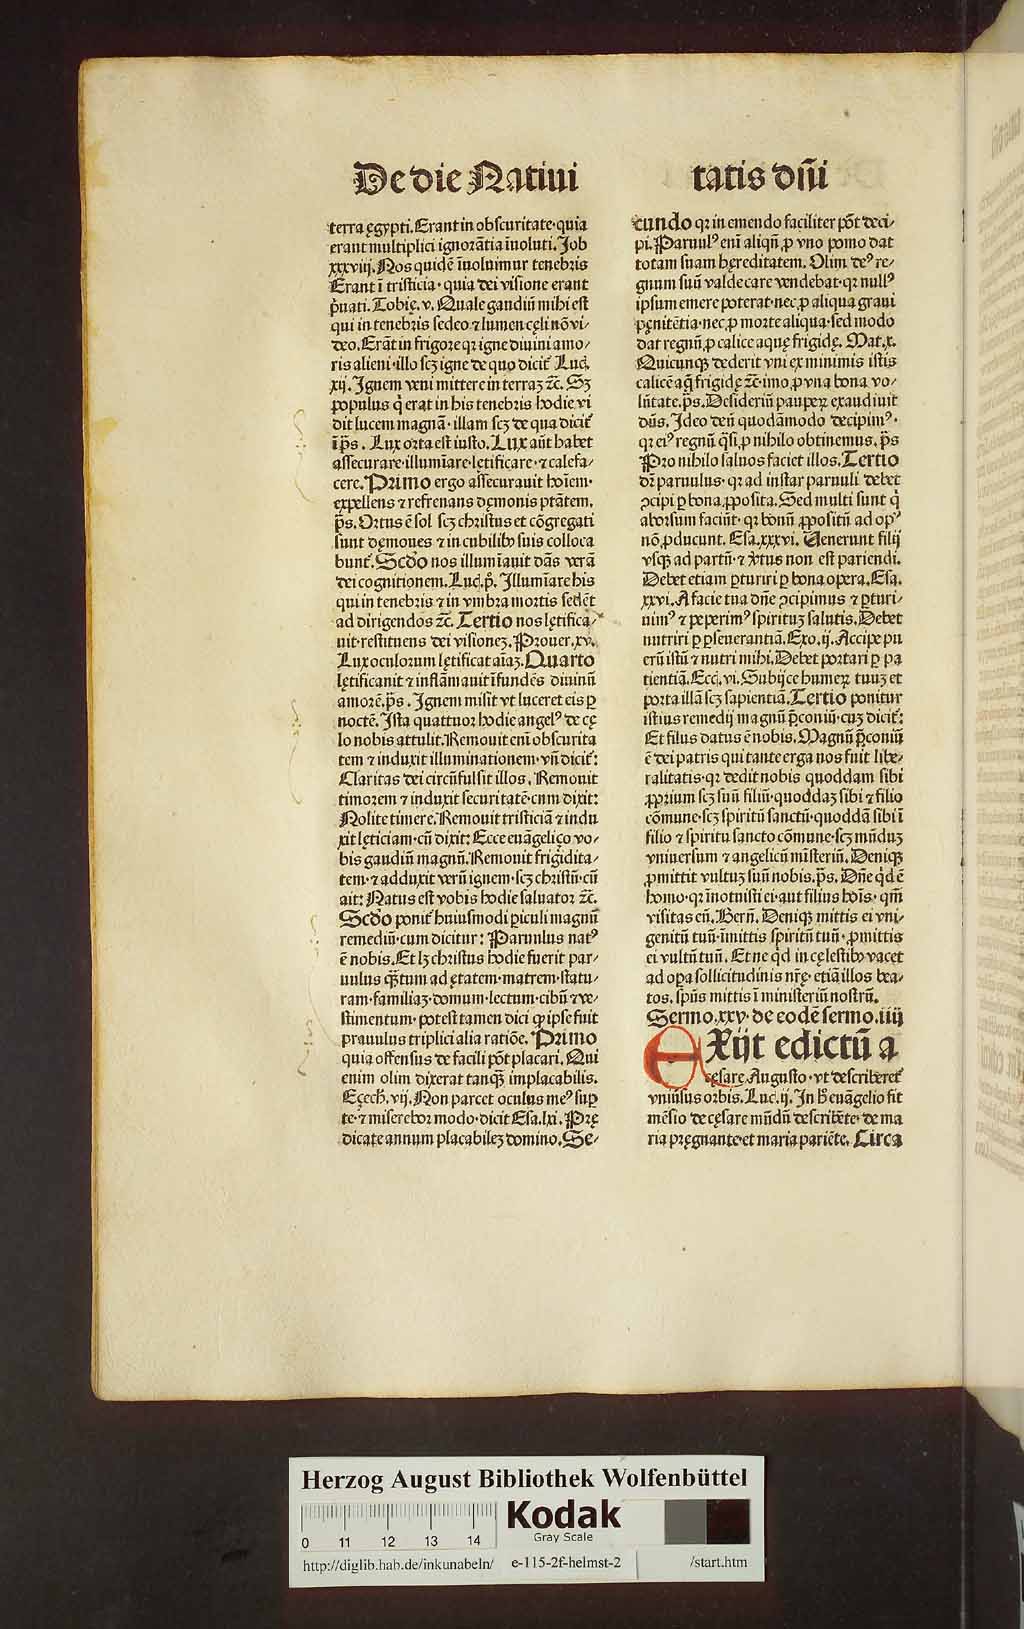 De die Natiui
tatis dñi
terra ęgypti. Erant in obscuritate· quia
erant multiplici ignorãtia ĩuoluti. Job
xxxviij. Nos quidẽ ĩuoluimur tenebris
Erant ĩ tristicia· quia dei visione erant
p̃uati. Tobię. v. Quale gaudiũ mihi est
qui in tenebris sedeo· ⁊ lumen cęli nõ vi⸗
deo. Erãt in frigore qr igne diuini amo⸗
ris alieni· illo scꝫ igne de quo dicit̃ Luc̃.
xij. Ignem veni mittere in terraꝫ ⁊c̃. Sꝫ
populus q̃ erat in his tenebris hodie vi
dit lucem magnã· illam scꝫ de qua dicit̃
ĩ p̃s. Lux orta est iusto. Lux aũt habet
assecurare· illumĩare· lętificare· ⁊ calefa⸗
cere. Primo ergo assecurauit hoĩem·
expellens ⁊ refrenans dęmonis ptãtem.
p̃s. Ortus ẽ sol scꝫ christus et cõgregati
sunt dęmones ⁊ in cubilibꝰ suis colloca
bunt̃. Scd̃o nos illumĩauit dãs verã
dei cognitionem. Luc̃. p̃. Illumĩare his
qui in tenebris ⁊ in vmbra mortis sedẽt
ad dirigendos ⁊c̃. Tertio nos lętifica⸗
uit· restituens dei visioneꝫ. Prouer. xv.
Lux oculorum lętificat aĩaꝫ. Quarto
lętificauit ⁊ inflãmauit ĩfundẽs diuinũ
amorẽ. p̃s. Ignem misit vt luceret eis ꝑ
noctẽ. Ista quattuor hodie angelꝰ de cę
lo nobis attulit. Remouit enĩ obscurita
tem ⁊ induxit illuminationem· vñ dicit̃:
Claritas dei circũfulsit illos. Remouit
timorem ⁊ induxit securitatẽ· cum dixit:
Nolite timere. Remouit tristiciã ⁊ indu
xit lęticiam· cũ dixit: Ecce euãgelico vo⸗
bis gaudiũ magnũ. Remouit frigidita⸗
tem· ⁊ adduxit verũ ignem· scꝫ christũ· cũ
ait: Natus est vobis hodie saluator ⁊c̃.
Scd̃o ponit̃ huiusmodi ꝑiculi magnũ
remediũ· cum dicitur: Paruulus natꝰ
ẽ nobis. Et lꝫ christus hodie fuerit par⸗
uulus q̃tum ad ętatem· matrem· statu⸗
ram· familiaꝫ· domum· lectum· cibũ ⁊ ve⸗
stimentum· potest tamen dici ꝙ ipse fuit
prauulus triplici alia ratiõe. Primo
quia offensus de facili põt placari. Qui
enim olim dixerat tanqꝫ implacabilis.
Eęech. vij. Non parcet oculus meꝰ suꝑ
te· ⁊ miserebor modo· dicit Esa. lxi. Prę
dicate annum placabileꝫ domino. Se⸗
cundo qr in emendo faciliter põt deci⸗
pi. Paruulꝰ enĩ aliqñ ꝓ vno pomo dat
totam suam hęreditatem. Olim deꝰ re⸗
gnum suũ valde care vendebat· qr nullꝰ
ipsum emere poterat· nec ꝓ aliqua graui
pęnitẽtia· nec ꝓ morte aliqua· sed modo
dat regnũ ꝓ calice aquę frigidę. Mat. x.
Quicunqꝫ dederit vni ex minimis istis
calicẽ aq̃ frigidę ⁊c̃· imo ꝓ vna bona vo⸗
lũtate. p̃s. Desideriũ pauperꝝ exaudiuit
dñs. Ideo deũ quodãmodo decipimꝰ·
qr eiꝰ regnũ q̃si ꝓ nihilo obtinemus. p̃s
Pro nihilo saluos faciet illos. Tertio
dr̃ paruulus· qr ad instar paruuli debet
ꝯcipi ꝑ bona ꝓposita. Sed multi sunt q̃
aborsum faciũt· qr bonũ ꝓpositũ ad opꝰ
nõ ꝓducunt. Esa. xxxvi. Uenerunt filij
vsqꝫ ad partũ· ⁊ ṽtus non est pariendi.
Debet etiam ꝑturiri ꝑ bona opera. Esa.
xxvi. A facie tua dñe ꝯcipimus ⁊ ꝑturi⸗
uimꝰ ⁊ peperimꝰ spirituꝫ salutis. Debet
nutriri ꝑ ꝑseuerantiã. Exo. ij. Accipe pu
erũ istũ ⁊ nutri mihi. Debet portari ꝑ pa
tientiã. Ecc̃. vi. Subijce humerꝝ tuuꝫ et
porta illã scꝫ sapientiã. Tertio ponitur
istius remedij magnũ p̃coniũ· cuꝫ dicit̃:
Et filus datus ẽ nobis. Magnũ p̃coniũ
ẽ dei patris qui tante erga nos fuit libe⸗
ralitatis· qr dedit nobis quoddam sibi
ꝓprium scꝫ suũ filiũ· quoddaꝫ sibi ⁊ filio
cõmune· scꝫ spiritũ sanctũ· quoddã sibi ĩ
filio ⁊ spiritu sancto cõmune· scꝫ mũduꝫ
vniuersum ⁊ angelicũ mĩsteriũ. Deniqꝫ
ꝓmittit vultuꝫ suũ nobis. p̃s. Dñe q̃d ẽ
homo· qr ĩnotuisti ei· aut filius hoĩs· qm̃
visitas eũ. Berñ. Deniqꝫ mittis ei vni⸗
genitũ tuũ· ĩmittis spiritũ tuũ· ꝓmittis
ei vultũ tuũ. Et ne q̃d in cęlestibꝰ vacet
ad oꝑa sollicitudinis nr̃ę· etiã illos bea⸗
tos. sp̃us mittis ĩ ministeriũ nostrũ.
Sermo. xxv. de eodẽ sermo. iiij
EXijt edictũ a
cęsare Augusto· vt describeret̃
vniũsus orbis. Luc̃. ij. In h̃ euãgelio fit
mẽsio de cęsare mũdũ describẽte· de ma
ria pręgnante· et maria pariẽte. Circa
Herzog August Bibliothek Wolfenbüttel
0 11 12 13 14
Kodak
Gray Scale
http://diglib.hab.de/inkunabeln/ e-115-2f-helmst-2 /start.htm